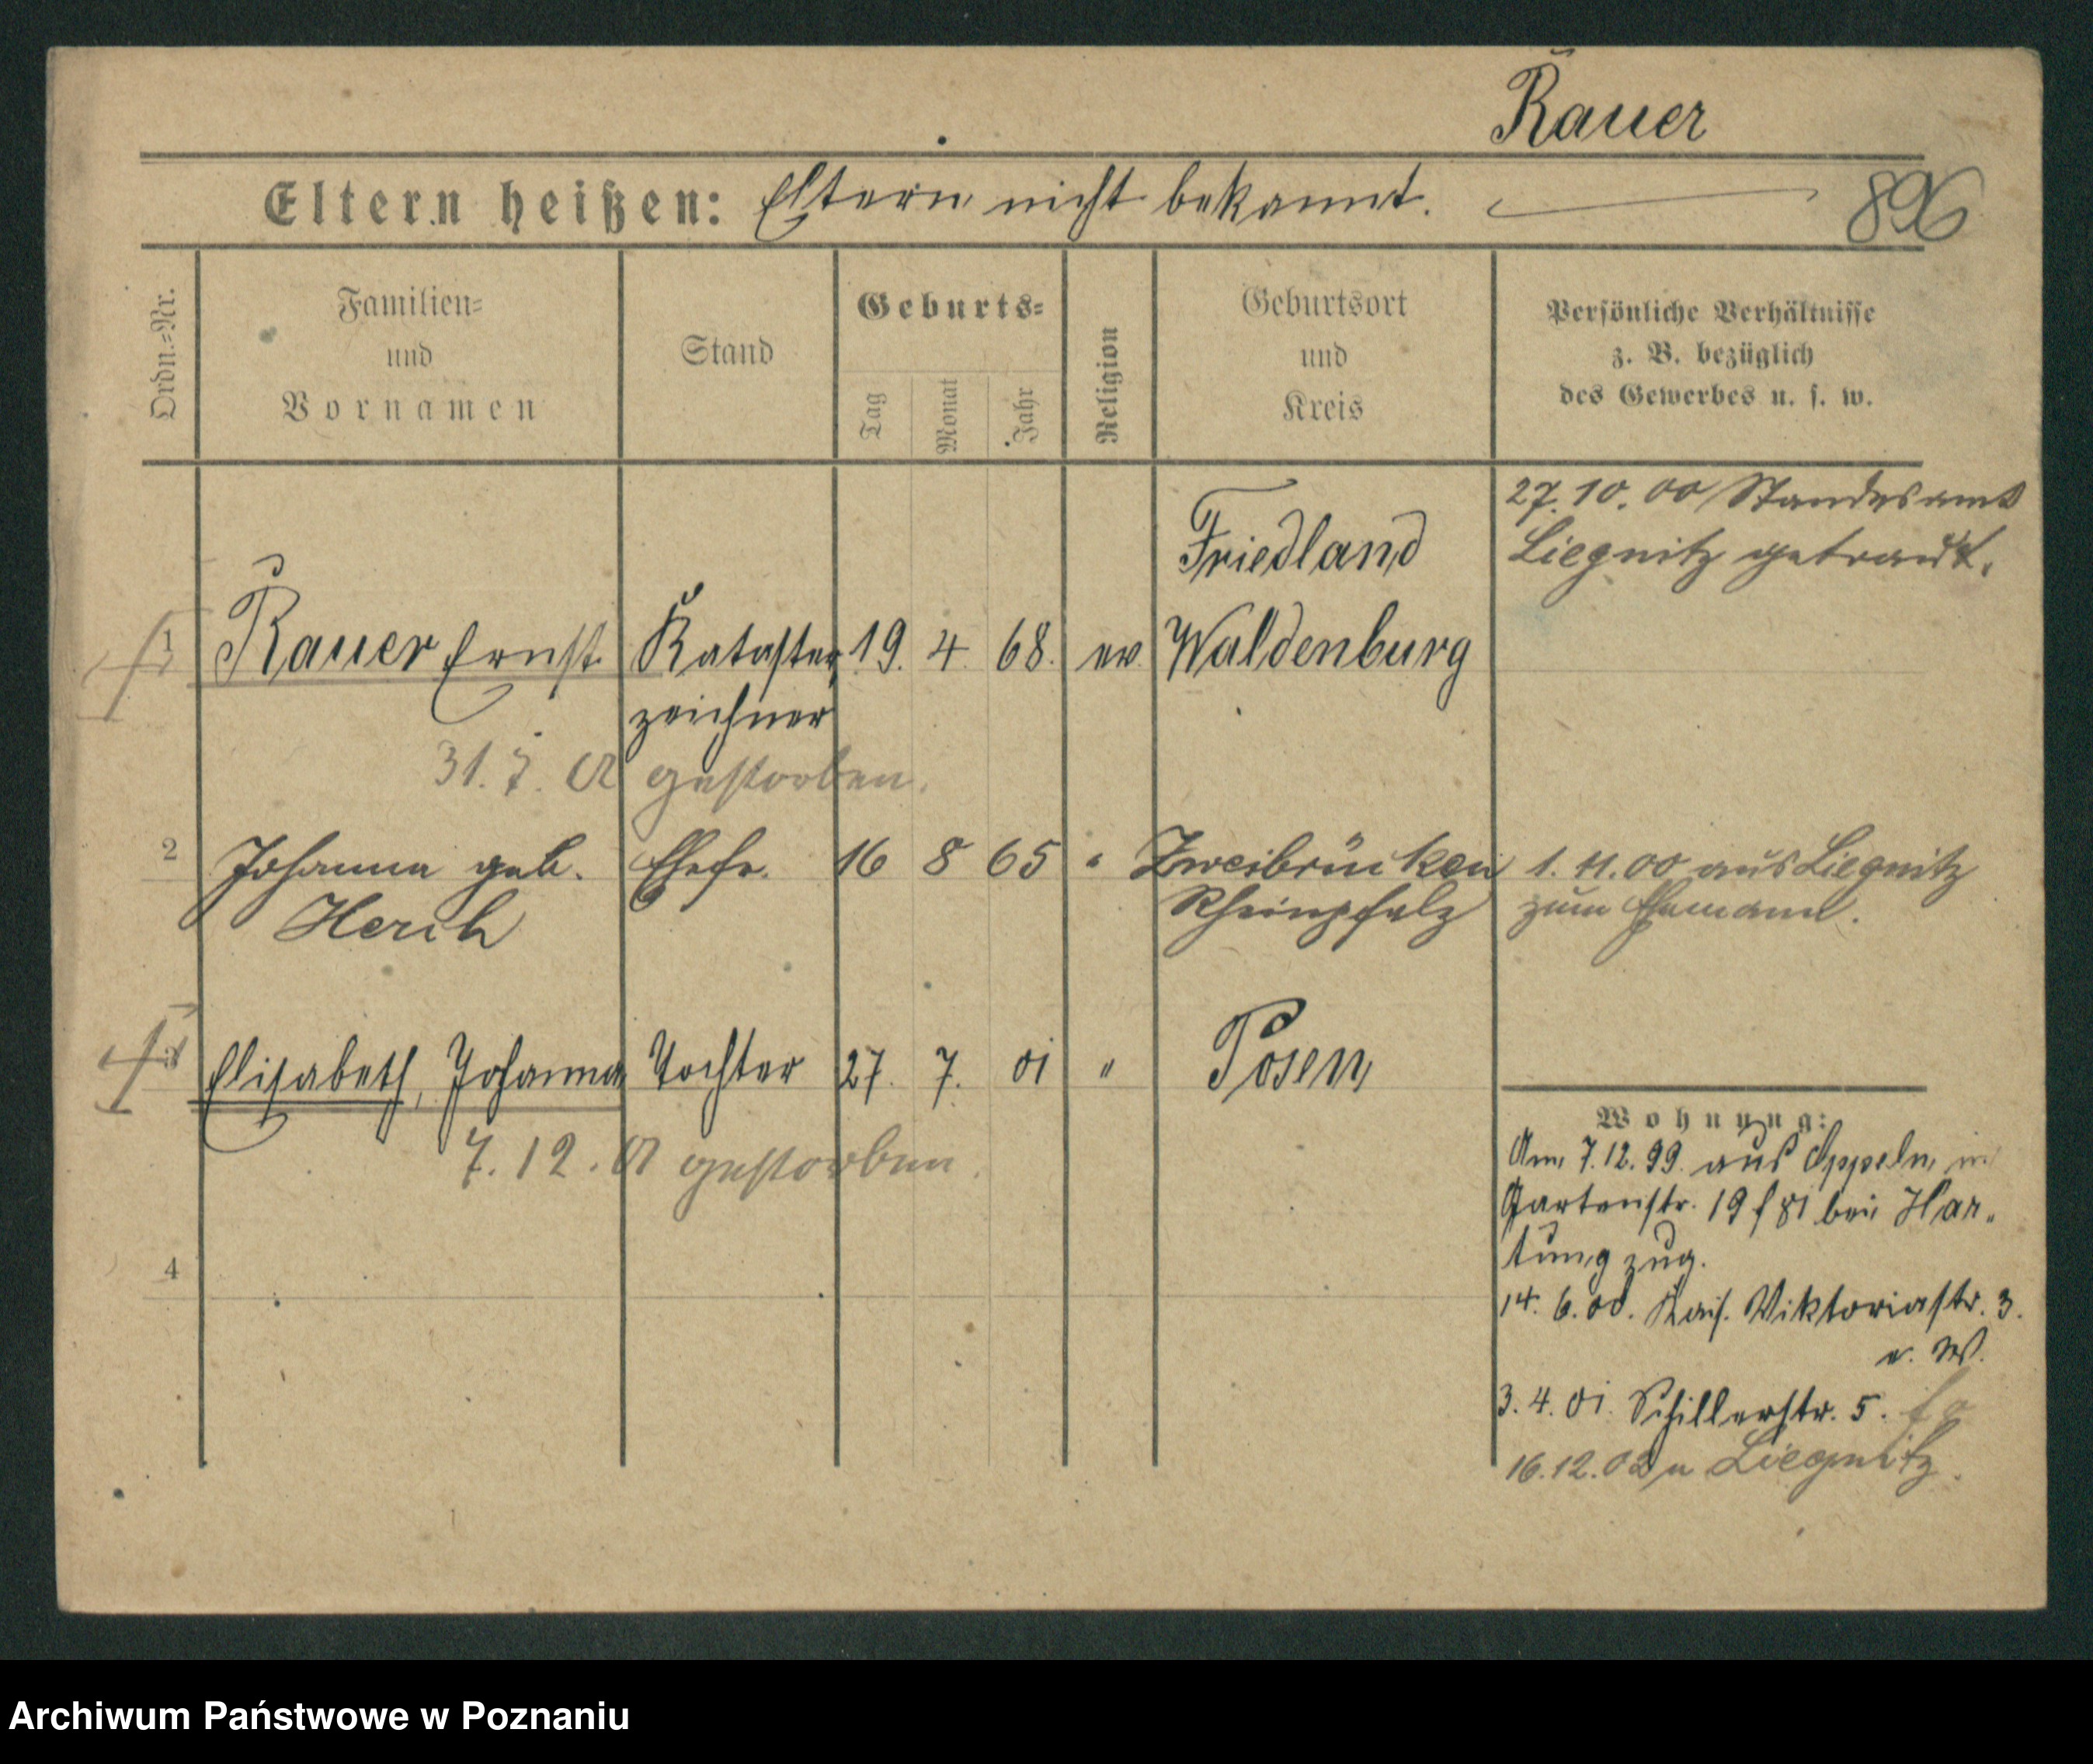 Rauer
Eltern heißen: Eltern nicht bekannt.
896
Ordn.-Nr.
Familien-
und
Vornamen
Stand
Geburts-
Tag
Monat
Jahr
Religion
Geburtsort
und
Kreis
Persönliche Verhältnisse
z. B. bezüglich
des Gewerbes u. s. w.
27.10.00 Standesamt
Liegnitz getraut.
Friedland
1 Rauer Ernst Kataster 19. 4. 68. ev. Waldenburg
zeichner
31.7. gestorben.
2 Johanna geb. Ehefr. 16 8 65 " Zweibrücken 1.11.00 aus Liegnitz
Herch Rheinpfalz zum Ehemann.
3 Elisabeth, Johanna Tochter 27. 7. 01 " Posen
7.12.01 gestorben.
Wohnung:
Am 7.12.99. aus Oppeln in
Gartenstr. 19 f 81 bei Har-
tung zug.
14.6.00. Kais. Viktoriastr. 3.
e. W.
3.4.01. Schillerstr. 5.
16.12.02 n Liegnitz.
4
Archiwum Państwowe w Poznaniu